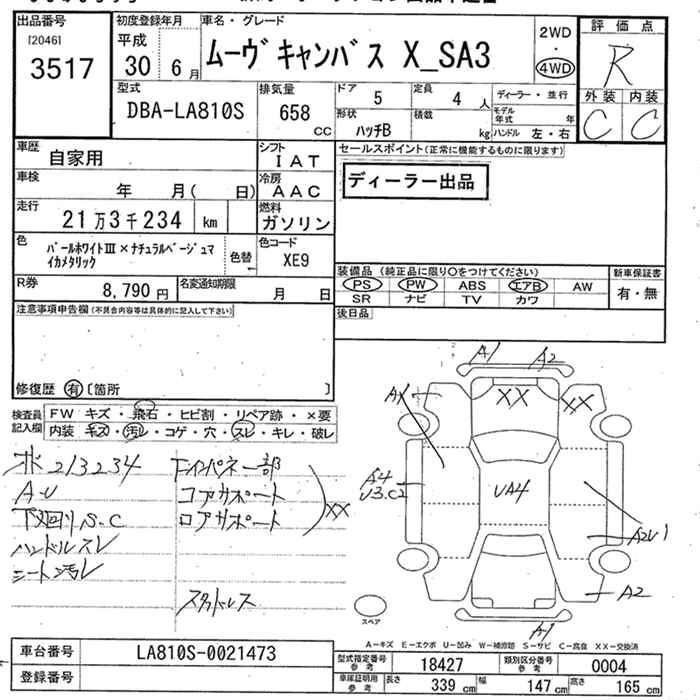 出品番号
[2046]
3517
初度登録年月
平成
30 6月
車名・グレード
ムーヴキャンバス X_SA3
2WD
・
4WD
評価点
R
外装 内装
C C
型式
DBA-LA810S
排気量
658
CC
ドア 5
定員 4 人
ディーラー・並行
モデル年式 年
形状
ハッチB
積載
kg
ハンドル 左・右
車歴 自家用
シフト
IAT
セールスポイント(正常に機能するものに限ります)
ディーラー出品
車検 年 月( 日)
冷房
AAC
走行 21万3千234 km
燃料
ガソリン
色
パールホワイトⅢ×ナチュラルベージュマ
イカメタリック
色替
色コード
XE9
装備品(純正品に限り○をつけてください)
PS PW ABS エアB AW
SR ナビ TV カワ
新車保証書
有・無
R券 8,790円
名変通知期限
月 日
後日品
注意事項申告欄(不具合内容等は具体的に記入して下さい)
修復歴 有 〔箇所 〕
検査員
記入欄
FW キズ・飛石・ヒビ割・リペア跡・×要
内装 キズ・汚レ・コゲ・穴・スレ・キレ・破レ
ホ 213234
A-U
下回りS.C
ハンドルスレ
シートヨゴレ
Fインパネ一部
コアサポート
ロアサポート
XX
スタッドレス
A1 A2
A1
XX XX
A4
U3.C2
UA4
A2U1
A2
A1
スペア
A-キズ E-エクボ U-凹み W-補修跡 S-サビ C-腐食 XX-交換済
車台番号 LA810S-0021473
登録番号
型式指定番号
参考
18427
類別区分番号
参考
0004
車庫証明用
参考
長さ 339 cm
幅 147 cm
高さ 165 cm